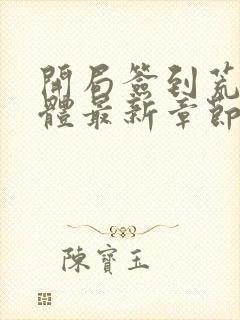 開局簽到荒
體最新章節
陳寶玉